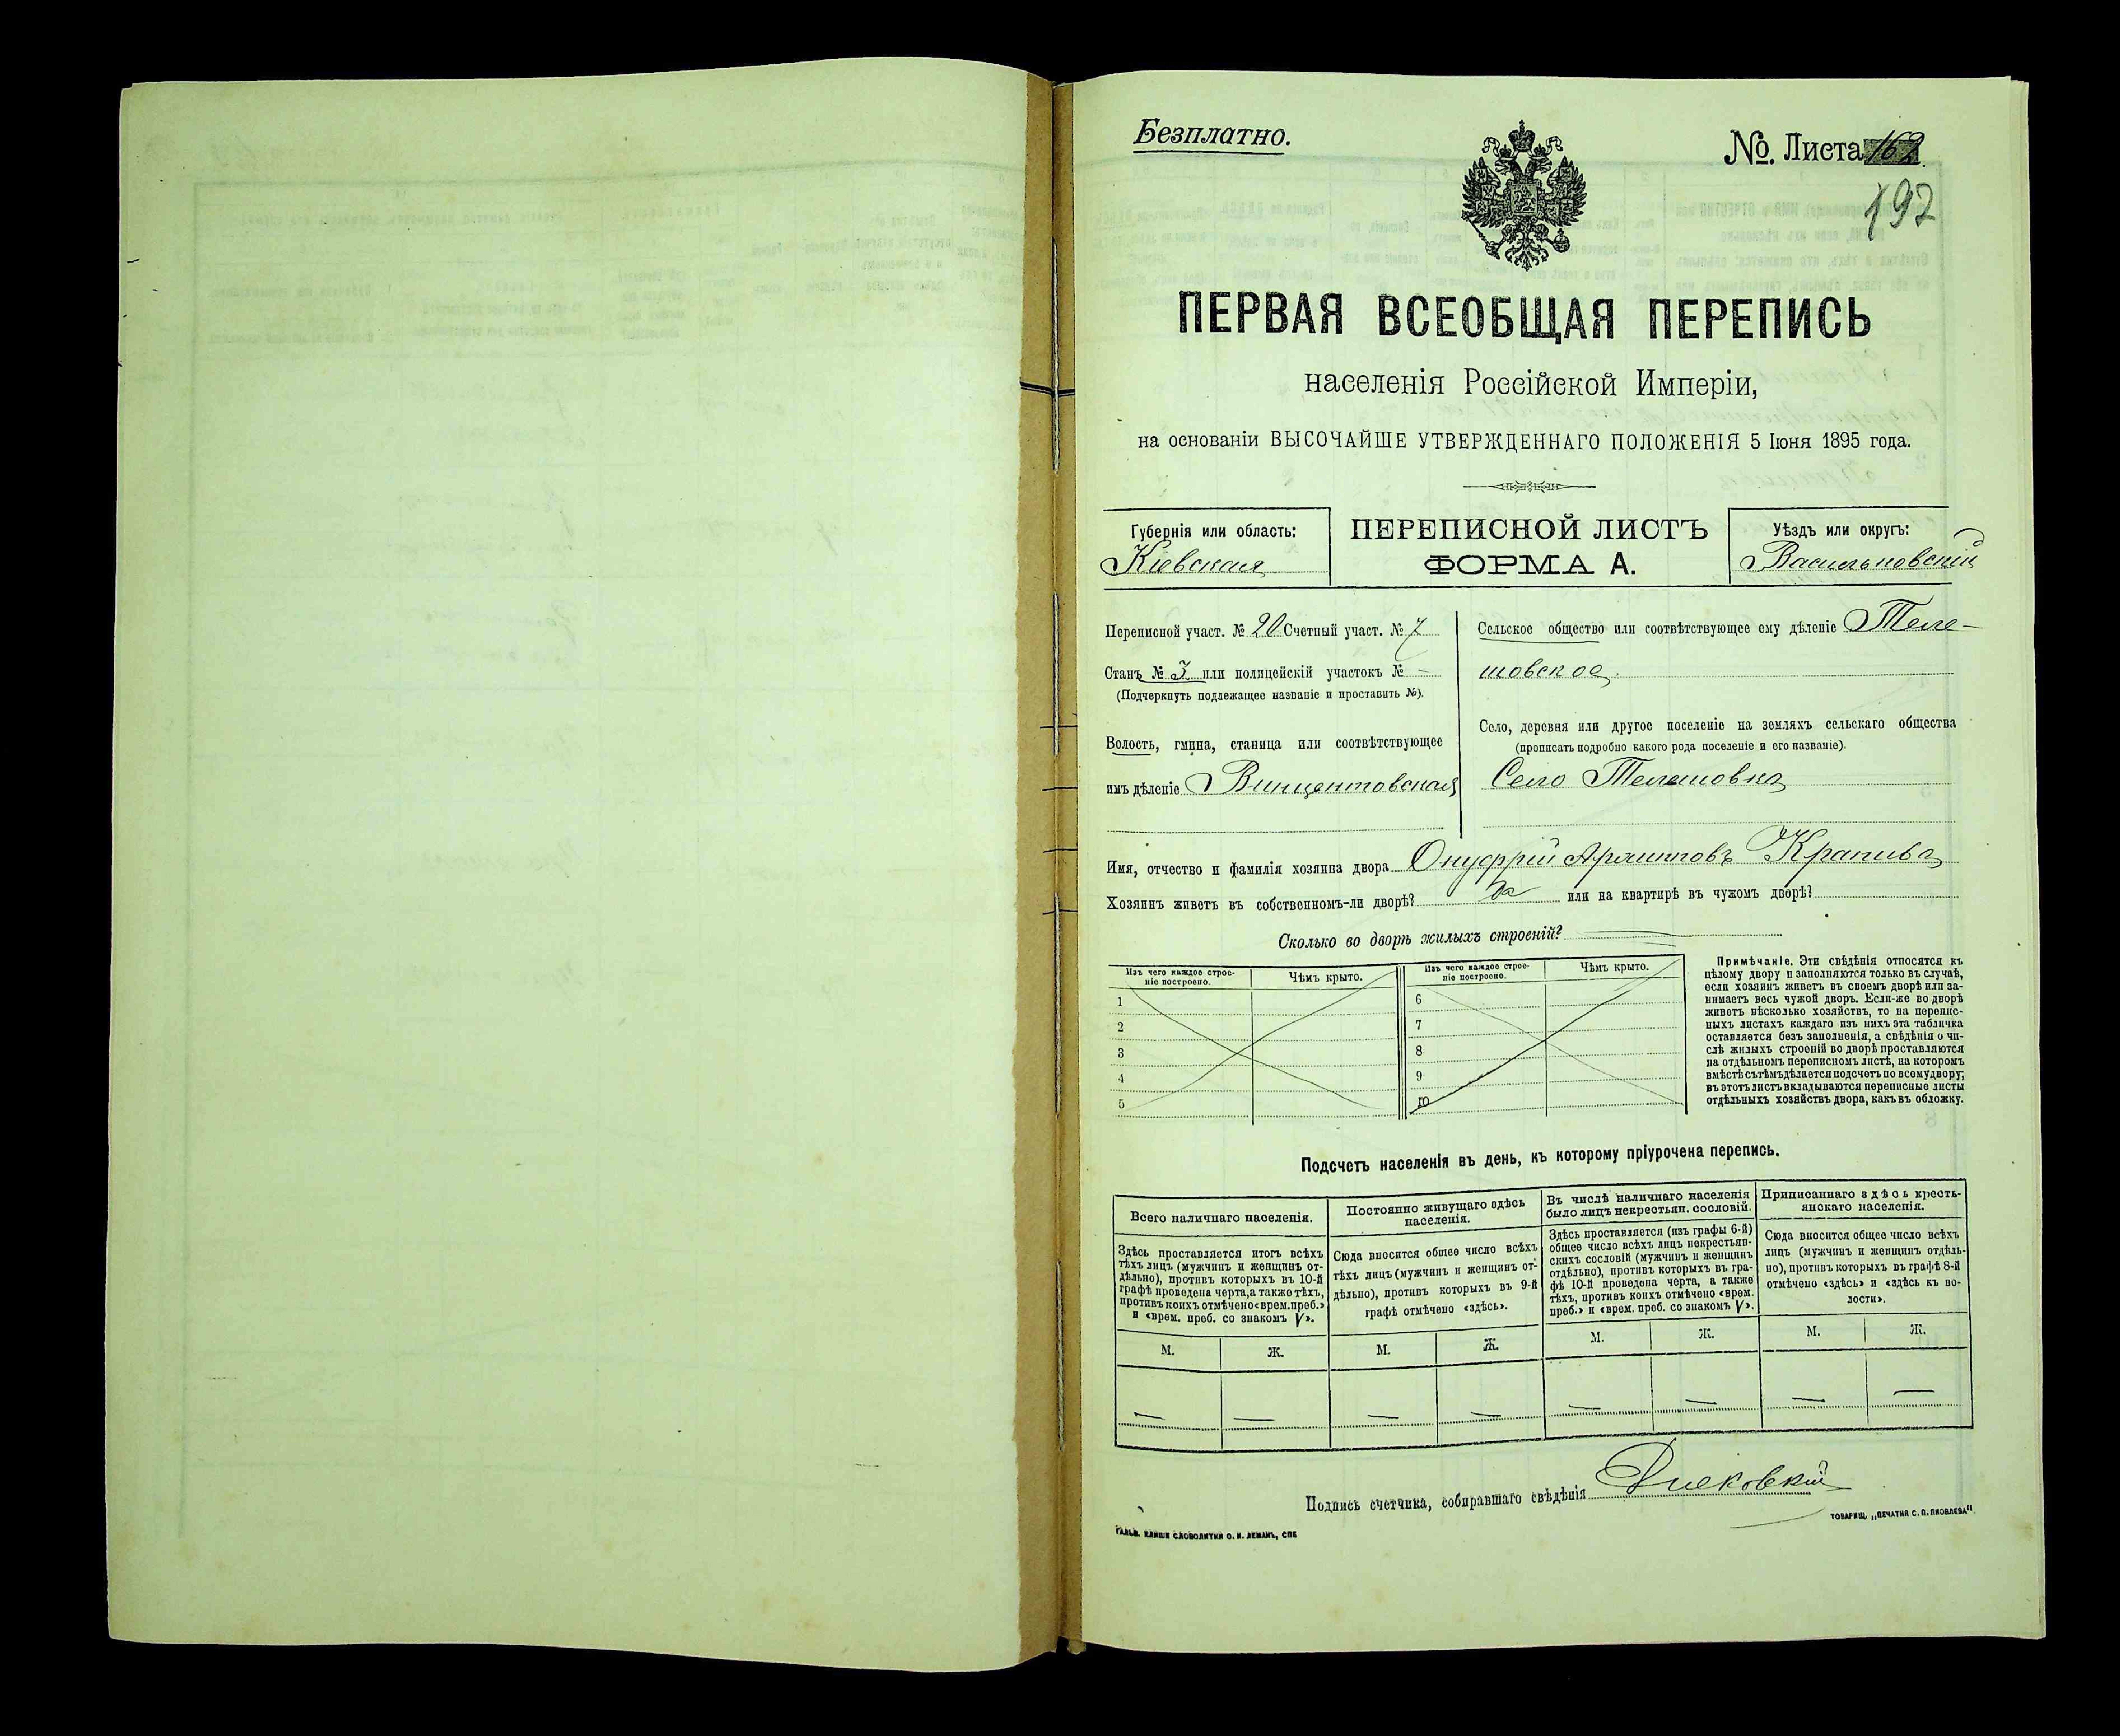 Безплатно.
№. Листа 162
197
ПЕРВАЯ ВСЕОБЩАЯ ПЕРЕПИСЬ
населенія Россійской Имперіи,
на основаніи ВЫСОЧАЙШЕ УТВЕРЖДЕННАГО ПОЛОЖЕНІЯ 5 Іюня 1895 года.
Губернія или область:
Кіевская
ПЕРЕПИСНОЙ ЛИСТЪ
ФОРМА А.
Уѣздъ или округъ:
Васильковскій
Переписной участ. № 20 Счетный участ. № 7
Станъ № 3 или полицейскій участокъ № -
(Подчеркнуть подлежащее названіе и проставить №).
Волость, гмина, станица или соотвѣтствующее
имъ дѣленіе Винцентовская
Сельское общество или соотвѣтствующее ему дѣленіе Теле-
шовское.
Село, деревня или другое поселеніе на земляхъ сельскаго общества
(прописать подробно какого рода поселеніе и его названіе).
Село Телешовка
Имя, отчество и фамилія хозяина двора Онуфрій Архиповъ Крапива
Хозяинъ живетъ въ собственномъ-ли дворѣ? да или на квартирѣ въ чужомъ дворѣ?
Сколько во дворѣ жилыхъ строеній?
Изъ чего каждое строе-
ніе построено.
Чѣмъ крыто.
1
2
3
4
5
Изъ чего каждое строе-
ніе построено.
Чѣмъ крыто.
6
7
8
9
10
Примѣчаніе. Эти свѣдѣнія относятся къ
цѣлому двору и заполняются только въ случаѣ,
если хозяинъ живетъ въ своемъ дворѣ или за-
нимаетъ весь чужой дворъ. Если-же во дворѣ
живетъ нѣсколько хозяйствъ, то на перепис-
ныхъ листахъ каждаго изъ нихъ эта табличка
оставляется безъ заполненія, а свѣдѣнія о чи-
слѣ жилыхъ строеній во дворѣ проставляются
на отдѣльномъ переписномъ листѣ, на которомъ
вмѣстѣ съ тѣмъ дѣлается подсчетъ по всему двору;
въ этотъ листъ вкладываются переписные листы
отдѣльныхъ хозяйствъ двора, какъ въ обложку.
Подсчетъ населенія въ день, къ которому пріурочена перепись.
Всего наличнаго населенія.
Здѣсь проставляется итогъ всѣхъ
тѣхъ лицъ (мужчинъ и женщинъ от-
дѣльно), противъ которыхъ въ 10-й
графѣ проведена черта, а также тѣхъ,
противъ коихъ отмѣчено «врем. преб.»
и «врем. преб. со знакомъ V».
М. Ж.
— —
Постоянно живущаго здѣсь
населенія.
Сюда вносится общее число всѣхъ
тѣхъ лицъ (мужчинъ и женщинъ от-
дѣльно), противъ которыхъ въ 9-й
графѣ отмѣчено «здѣсь».
М. Ж.
— —
Въ числѣ наличнаго населенія
было лицъ некрестьян. сословій.
Здѣсь проставляется (изъ графы 6-й)
общее число всѣхъ лицъ некрестьян-
скихъ сословій (мужчинъ и женщинъ
отдѣльно), противъ которыхъ въ гра-
фѣ 10-й проведена черта, а также
тѣхъ, противъ коихъ отмѣчено «врем.
преб.» и «врем. преб. со знакомъ V».
М. Ж.
— —
Приписаннаго здѣсь кресть-
янскаго населенія.
Сюда вносится общее число всѣхъ
лицъ (мужчинъ и женщинъ отдѣль-
но), противъ которыхъ въ графѣ 8-й
отмѣчено «здѣсь» и «здѣсь къ во-
лости».
М. Ж.
— —
Подпись счетчика, собиравшаго свѣдѣнія
ГАЛЬВ. КЛИШЕ СЛОВОЛИТНИ О. И. ЛЕМАНЪ, СПБ
ТОВАРИЩ. „ПЕЧАТНЯ С. П. ЯКОВЛЕВА"